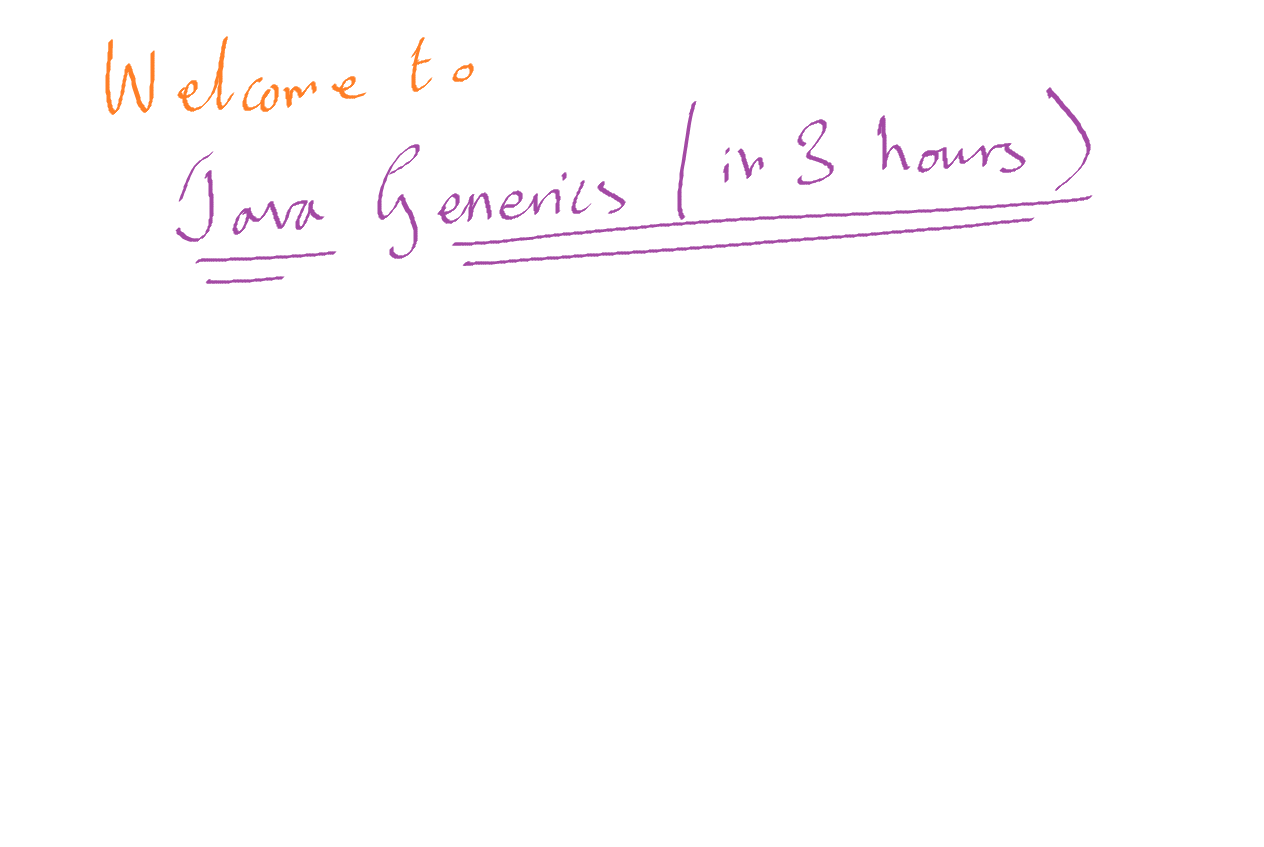 Welcome to
Java Generics (in 3 hours)